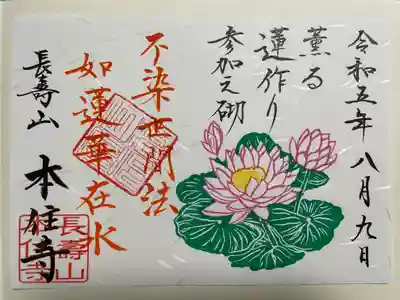 令和五年八月九日
薫る
蓮作り
参加之砌
不染世間法
如蓮華在水
長壽山 本住寺
長壽山
本住寺